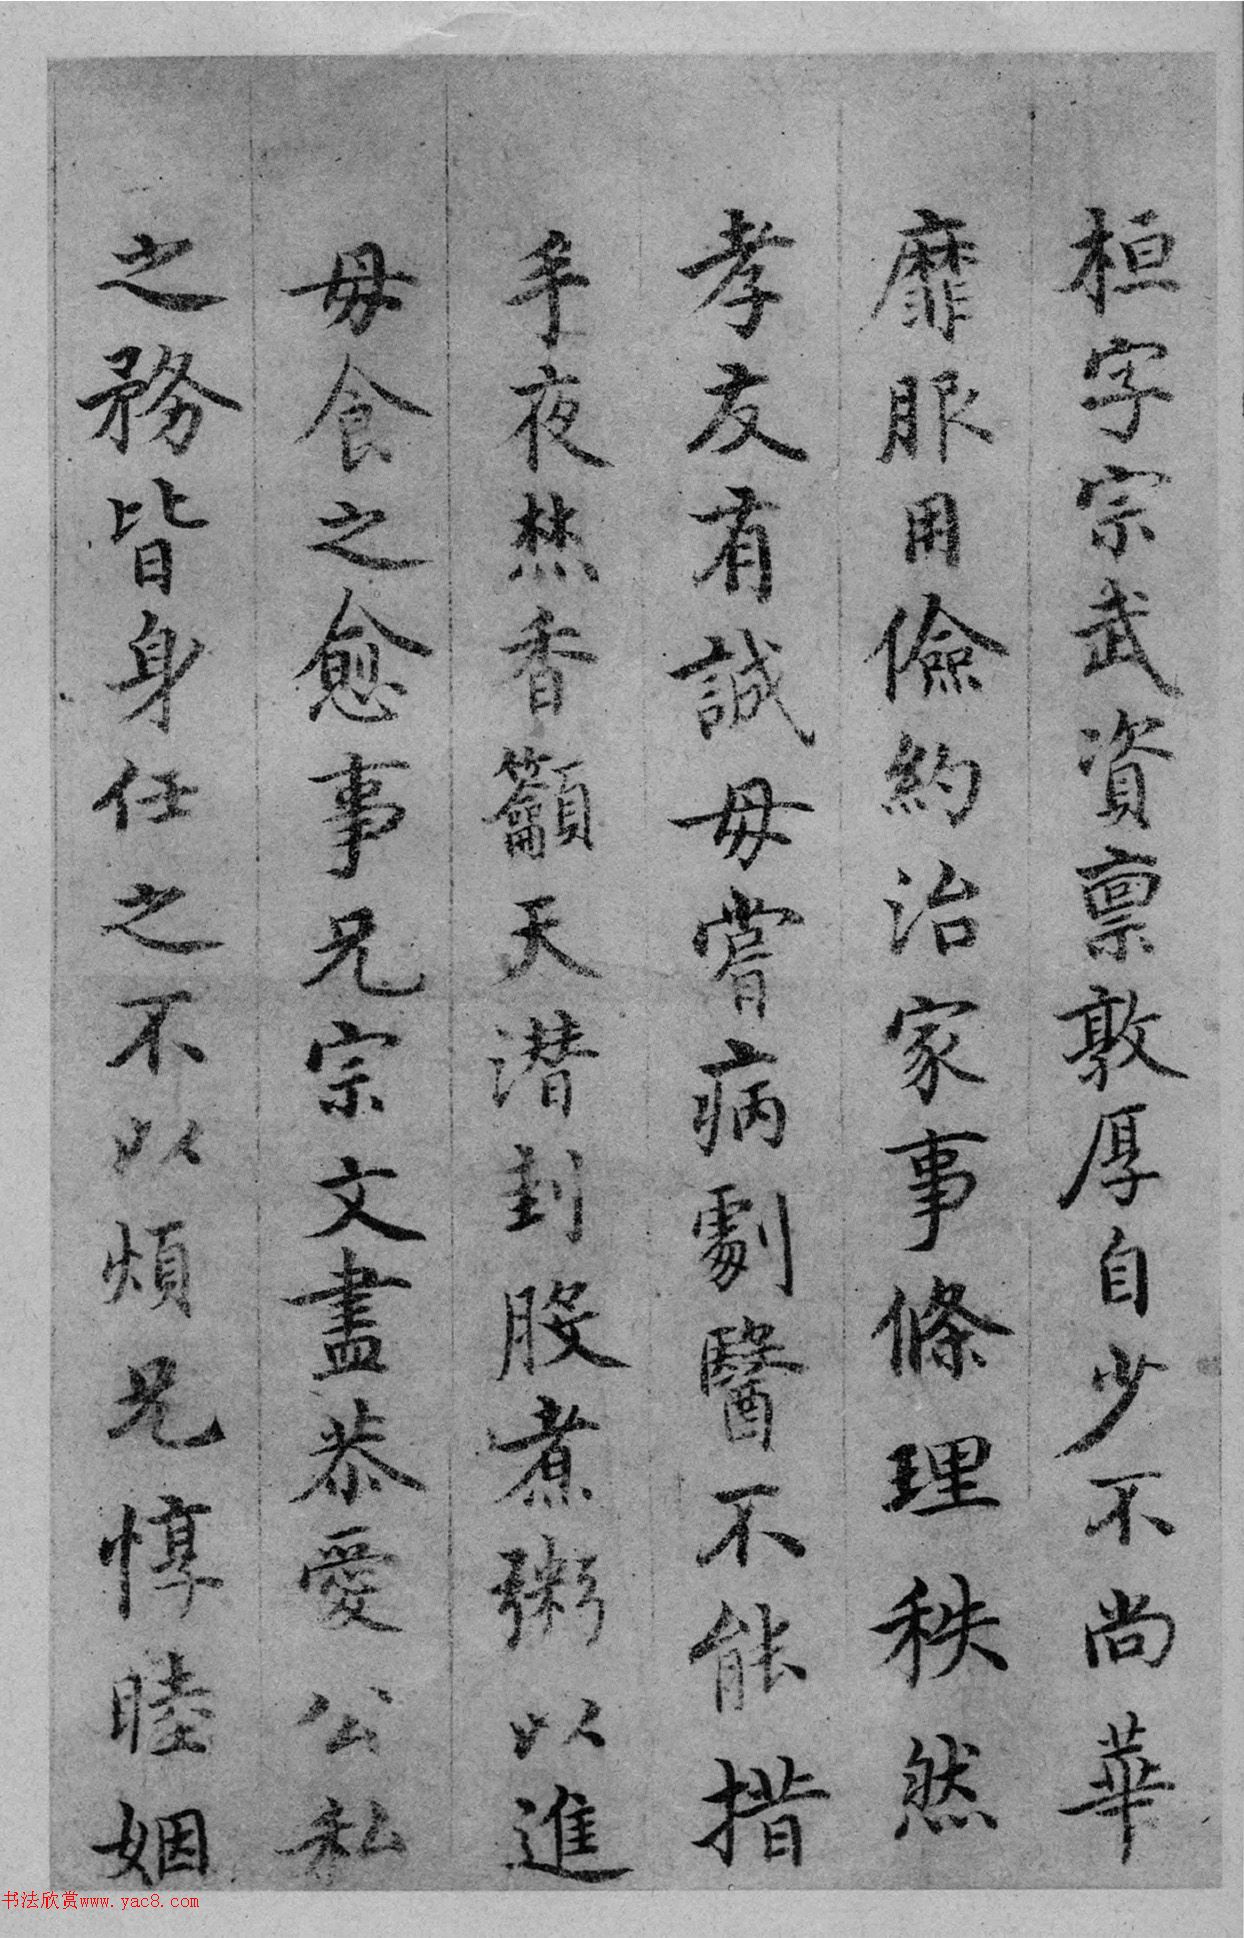 桓字宗武資稟敦厚自少不尚華
靡服用儉約治家事條理秩然
孝友有誠母嘗病劇醫不能措
手夜焚香籲天潛刲股煮粥以進
母食之愈事兄宗文盡恭愛公私
之務皆身任之不以煩兄惇睦姻
书法欣赏www.yac8.com